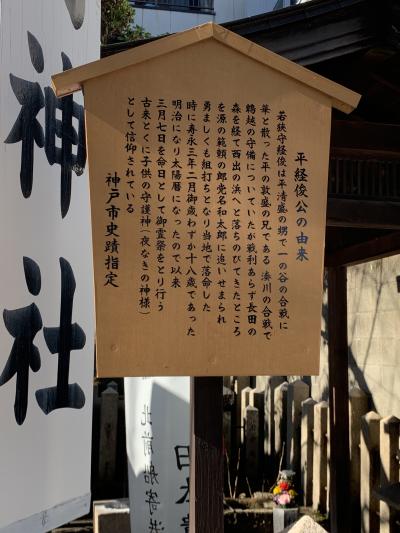 平経俊公の由来
若狭守経俊は平清盛の甥で 一の谷の合戦に
華と散った平の敦盛の兄である 湊川の合戦で
鵯越の守備についていたが戦利あらず長田の
森を経て西出の浜へと落ちのびてきたところ
を源の範頼の郎党名和太郎に追いせまられ
勇ましくも組打ちとなり当地で落命した
時に寿永三年二月御歳わずか十八歳であった
明治になり太陽暦になったので以来
三月七日を命日として御霊祭をとり行う
古来とくに子供の守護神(夜なきの神様)
として信仰されている
神戸市史蹟指定
神社
北前船寄港
日本遺